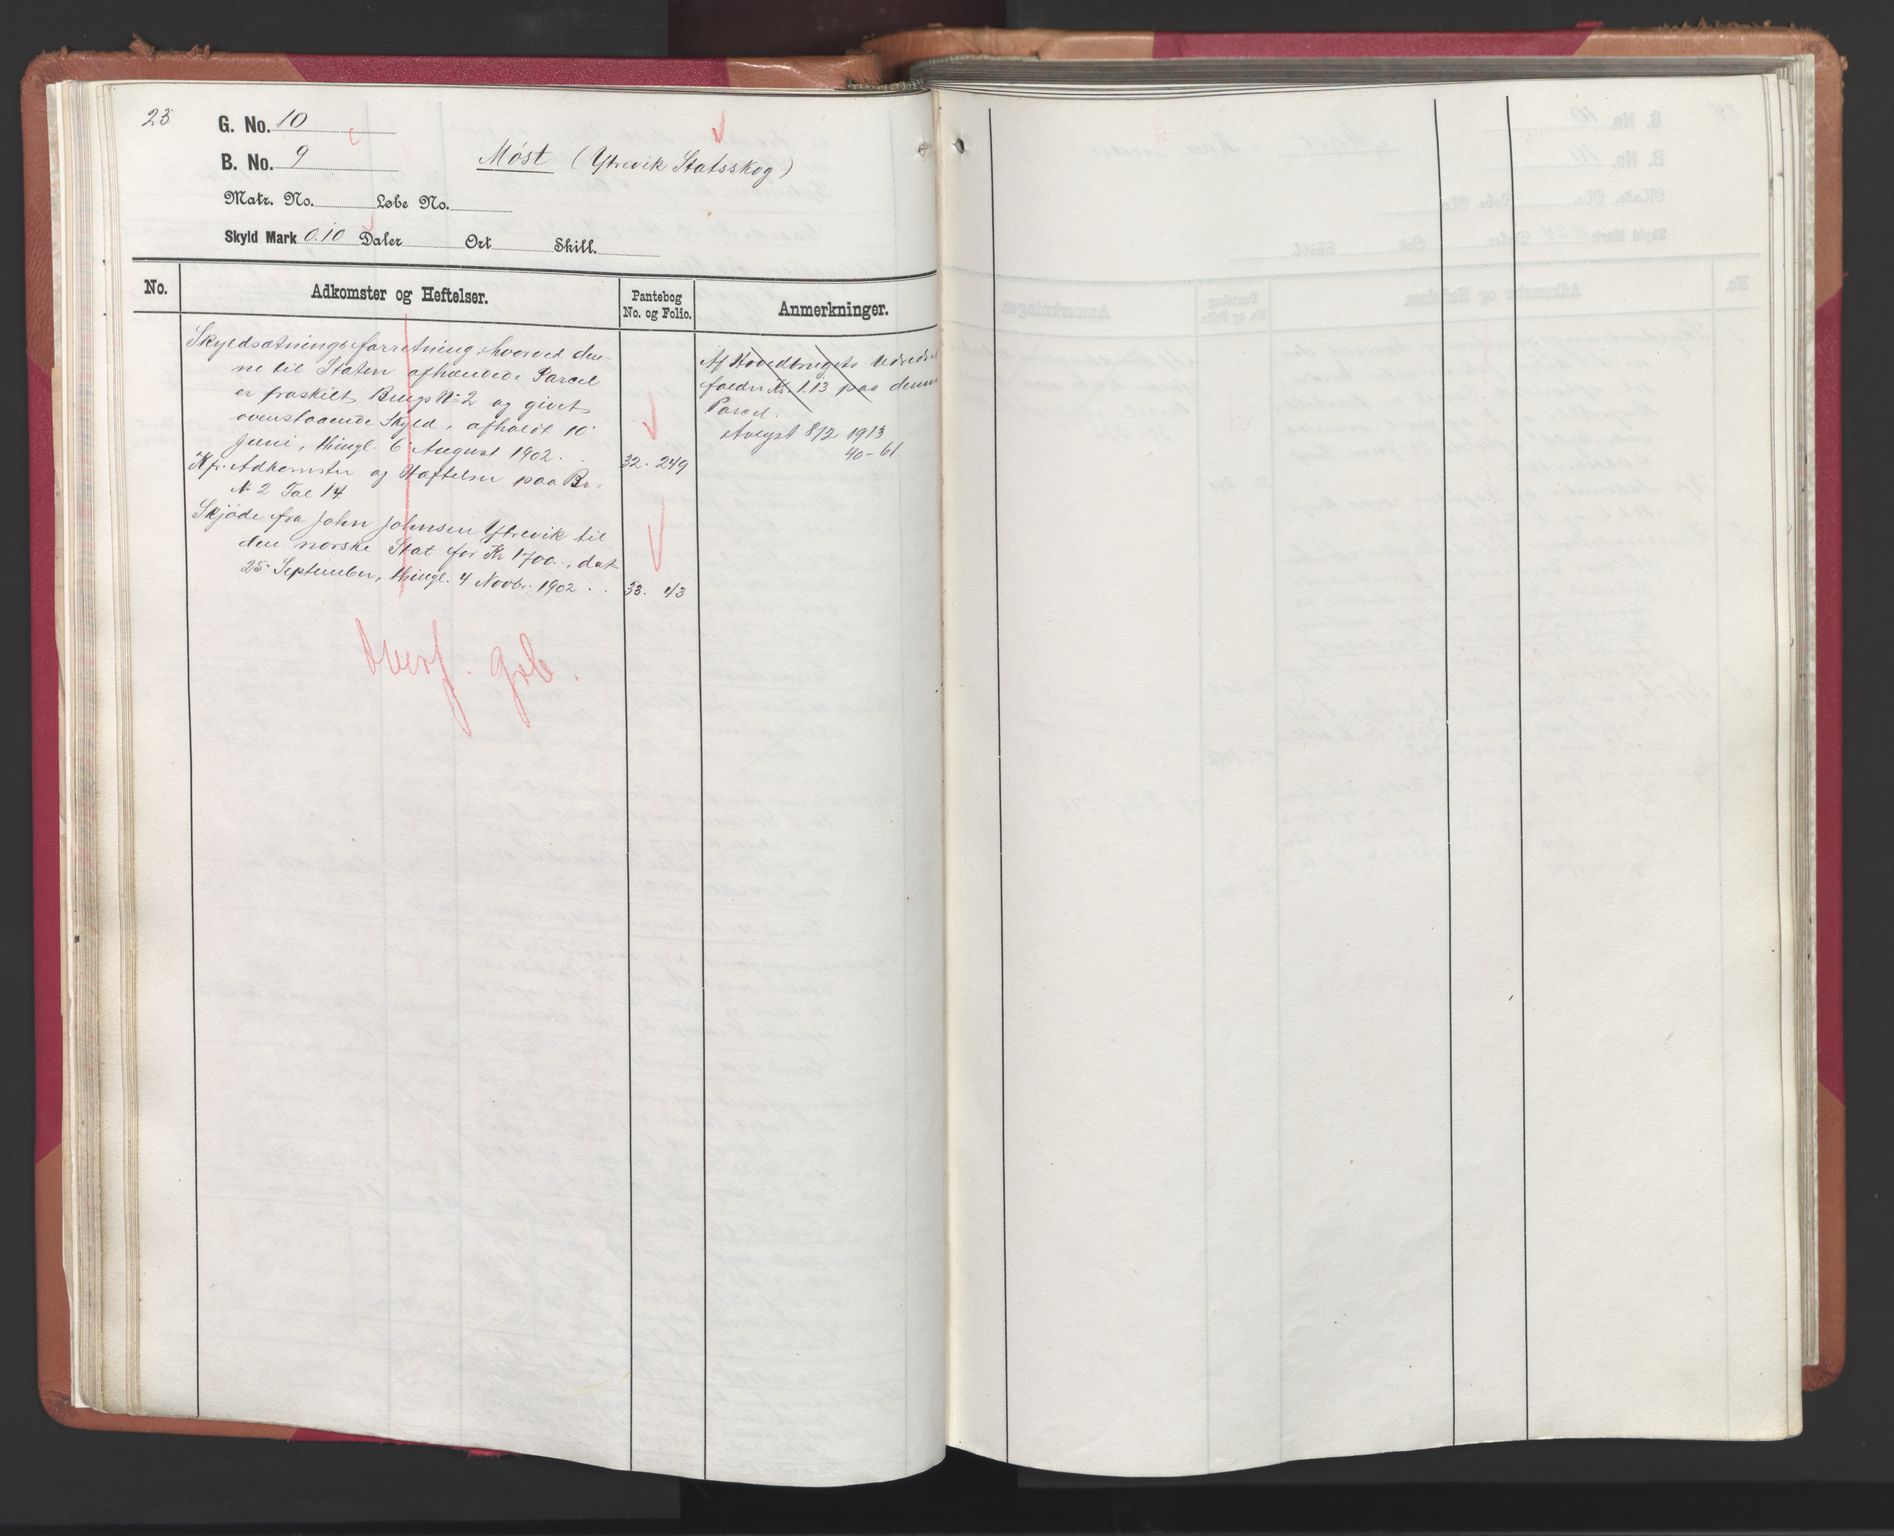 23
G. No. 10
B. No. 9 Møst (Ytrevik Statsskog)
Matr. No. Løbe No.
Skyld Mark 0.10 Daler Ort Skill.
No. Adkomster og Heftelser. Pantebog No. og Folio. Anmerkninger.
Skyldsætningsforretning, hvorved den-
ne til Staten afhændede Parcel
er fraskilt Brugs No 2 og givet
ovenstaaende Skyld, afholdt 10
Juni, thingl. 6 August 1902. . 32. 249
Kfr. Adkomster og Hæftelser paa Br.
N 2 Fol 14
Skjöde fra John Johnsen Ytrevik til
den norske Stat for Kr 1700.-, dat
25 September, thingl. 4 Novbr. 1902 . . 33. 43
Af Hovedbrugets
falder Kr. 1.13 paa denne
Parcel.
Avlyst 8/2 1913
40-61
Overf. Grb.